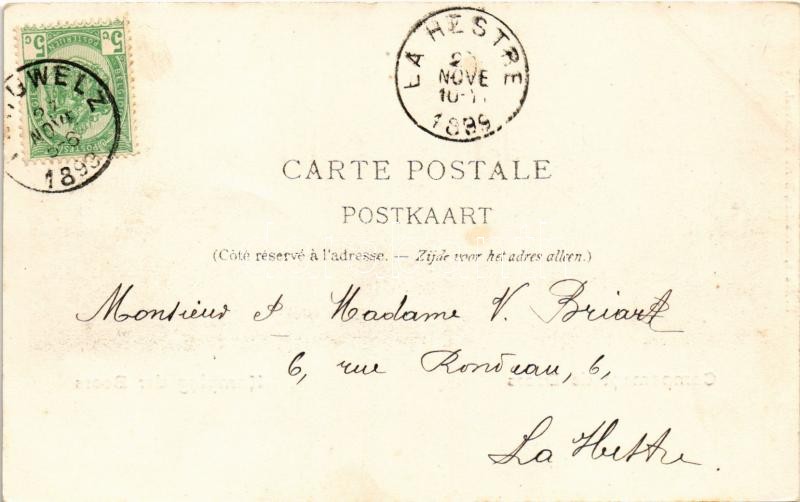 5 c 5 c
LA HESTRE
NOVE
10-11
1899
WELZ
NOVE
1899
CARTE POSTALE
POSTKAART
(Côté réservé à l'adresse. — Zijde voor het adres alleen.)
Monsieur & Madame V. Briart
6, rue Rondeau, 6,
La Hestre.